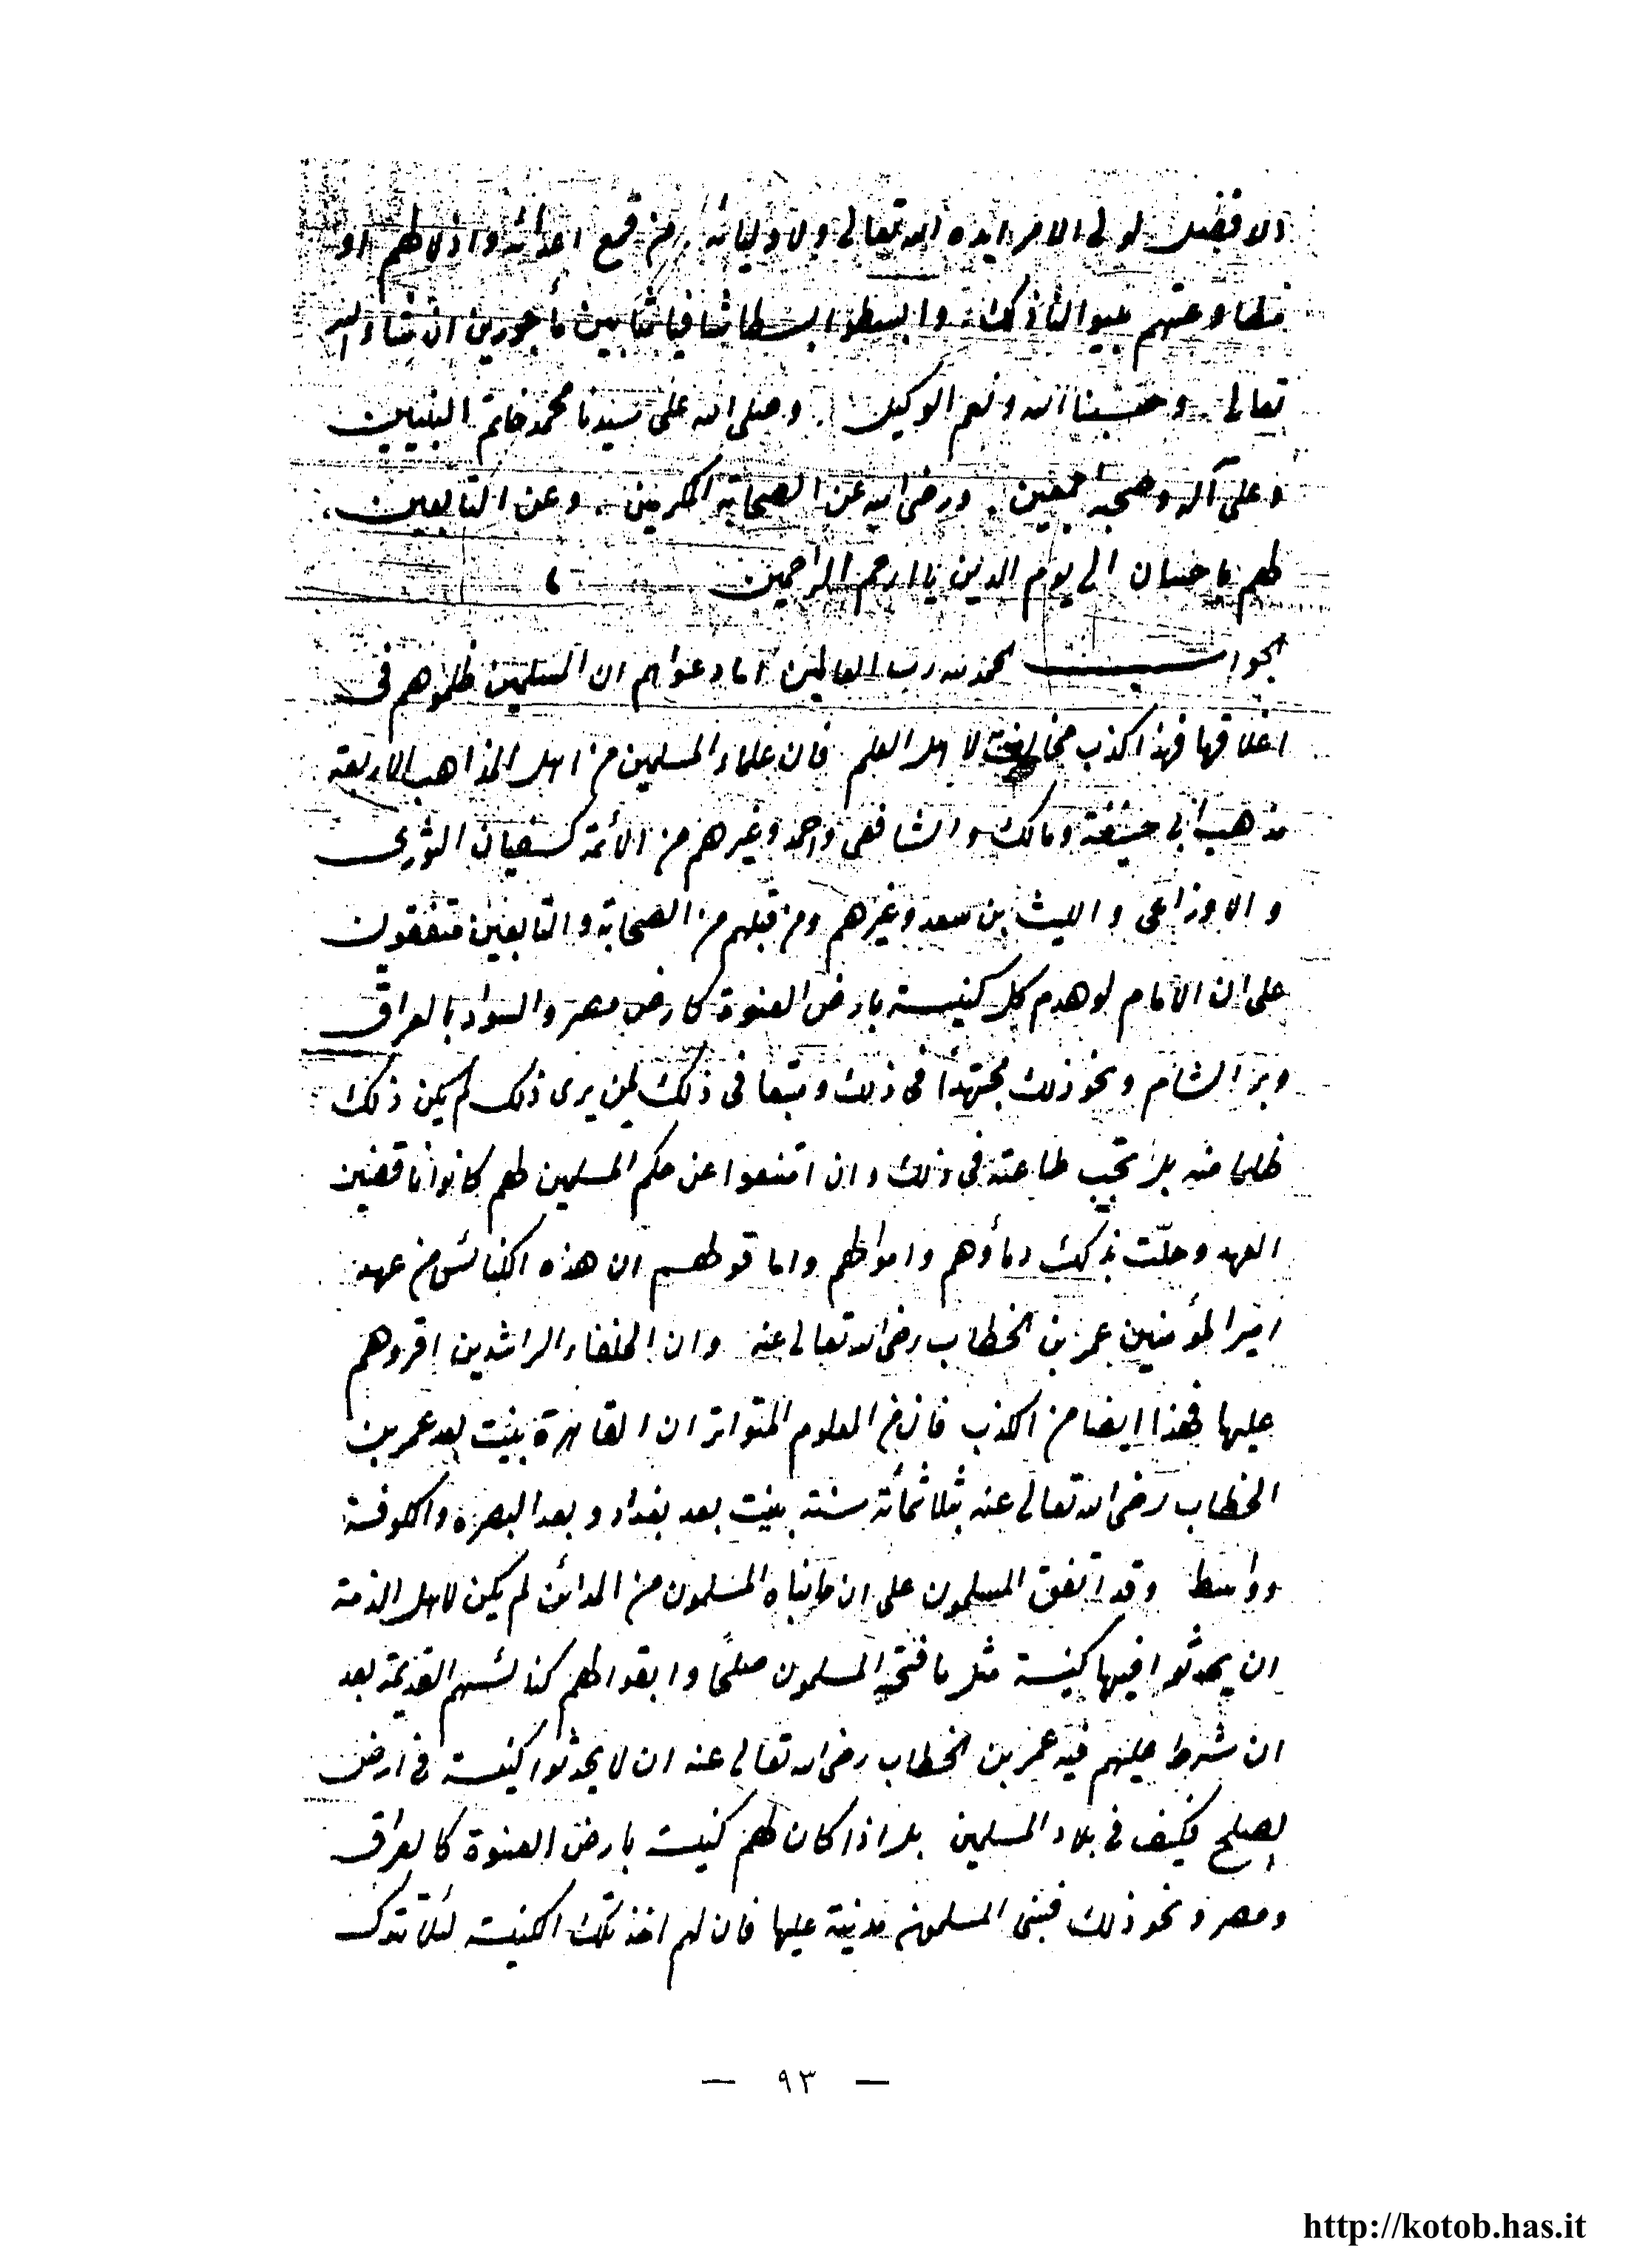 الافضل لولى الامر ايده الله تعالى ولاوليائه من قمع اعدائه واذلالهم او
مطاوعتهم بينوا لنا ذلك وابسطوا بسطا شافيا مثابين مأجورين ان شاء الله
تعالى وحسبنا الله ونعم الوكيل . وصلى الله على سيدنا محمد خاتم النبيين
وعلى آله وصحبه اجمعين . ورضى الله عن الصحابة المكرمين . وعن التابعين
لهم باحسان الى يوم الدين يا ارحم الراحمين ،
الجواب الحمد لله رب العالمين اما دعواهم ان المسلمين ظلموهم فى
اغلاقها فهذا كذب مخالف لاهل العلم فان علماء المسلمين من اهل المذاهب الاربعة
مذهب ابى حنيفة ومالك والشافعى واحمد وغيرهم من الأئمة كسفيان الثورى
والاوزاعى والليث بن سعد وغيرهم ومن قبلهم من الصحابة والتابعين متفقون
على ان الامام لو هدم كل كنيسة بارض العنوة كارض مصر والسواد بالعراق
وبر الشام ونحو ذلك مجتهدا فى ذلك ومتبعا فى ذلك لمن يرى ذلك لم يكن ذلك
ظلما منه بل تجب طاعته فى ذلك وان امتنعوا عن حكم المسلمين لهم كانوا ناقضين
العهد وحلّت بذلك دمأوهم واموالهم واما قولهم ان هذه الكنائس من عهد
امير المؤمنين عمر بن الخطاب رضى الله تعالى عنه وان الخلفاء الراشدين اقروهم
عليها فهذا ايضا من الكذب فان من المعلوم المتواتر ان القاهرة بنيت بعد عمر بن
الخطاب رضى الله تعالى عنه بثلاثمائة سنة بنيت بعد بغداد وبعد البصره والكوفة
وواسط وقد اتفق المسلمون على ان ما بناه المسلمون من المدائن لم يكن لاهل الذمة
ان يحدثوا فيها كنيسة مثل ما فتحه المسلمون صلحًا وابقوا لهم كنائسهم القديمة بعد
ان شرط عليهم فيه عمر بن الخطاب رضى الله تعالى عنه ان لا يحدثوا كنيسة فى ارض
الصلح فكيف فى بلاد المسلمين بل اذا كان لهم كنيسة بارض العنوة كالعراق
ومصر ونحو ذلك فبنى المسلمون مدينة عليها فان لهم اخذ تلك الكنيسة لئلا تترك
— ٩٣ —
http://kotob.has.it